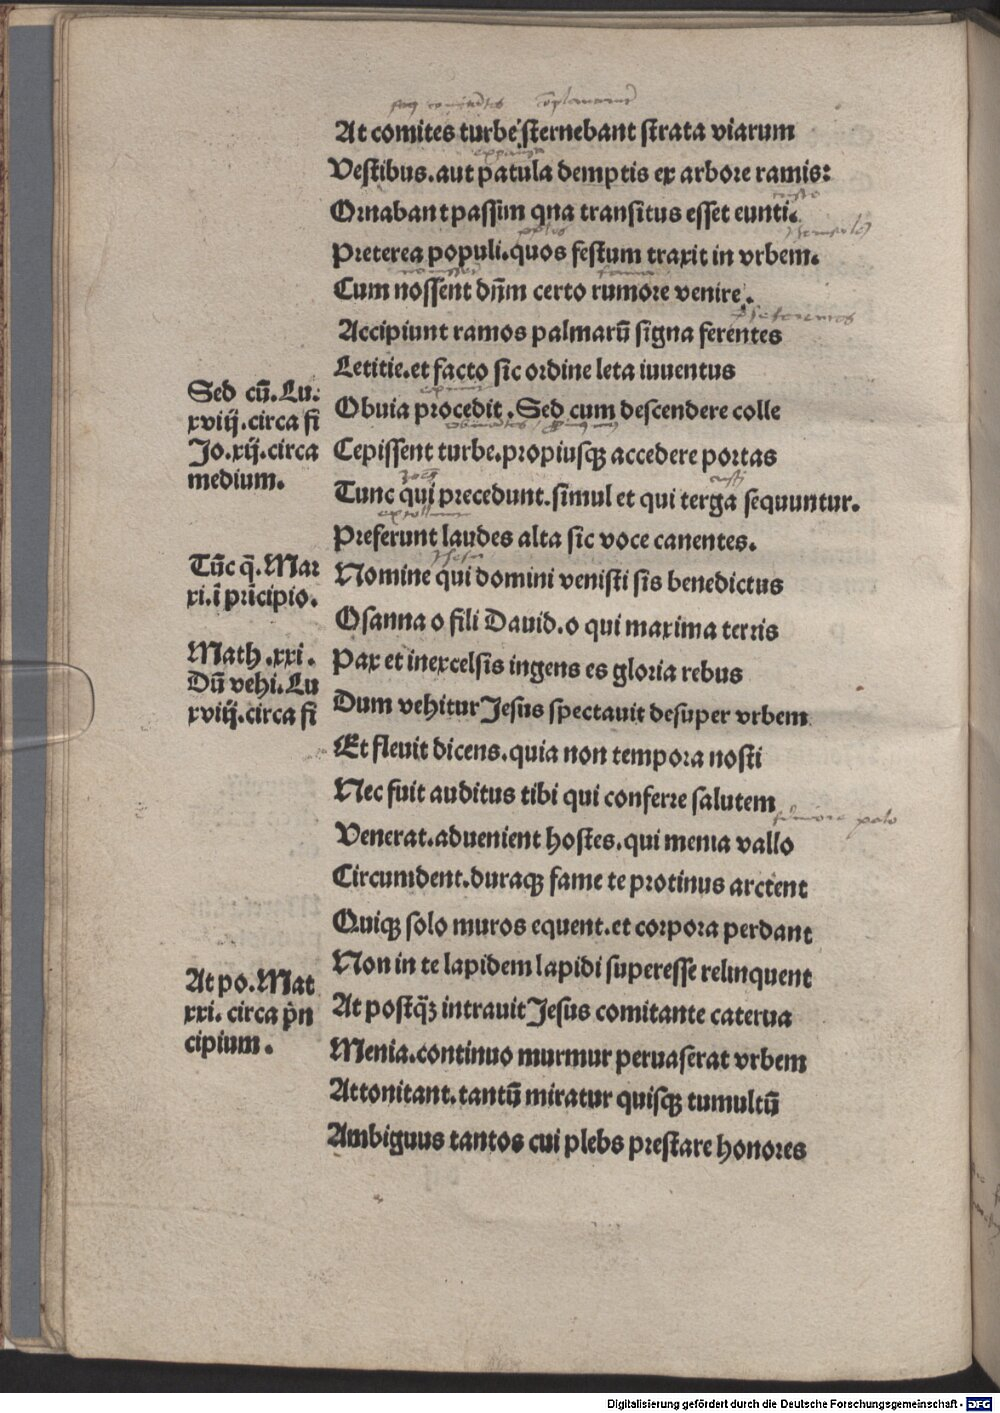 At comites turbe sternebant strata viarum
Vestibus.aut patula demptis ex arbore ramis:
Ornabant passim qna transitus esset eunti.
Preterea populi.quos festum traxit in vrbem.
Cum nossent dn̄m certo rumore venire.
Accipiunt ramos palmarū signa ferentes
Letitie.et facto sic ordine leta iuuentus
Obuia procedit.Sed cum descendere colle
Cepissent turbe.propiusqꝫ accedere portas
Tunc qui precedunt.simul et qui terga sequuntur.
Preferunt laudes alta sic voce canentes.
Nomine qui domini venisti sis benedictus
Osanna o fili Dauid.o qui maxima terris
Pax et inexcelsis ingens es gloria rebus
Dum vehitur Jesus spectauit desuper vrbem
Et fleuit dicens.quia non tempora nosti
Nec fuit auditus tibi qui conferre salutem
Venerat.aduenient hostes.qui menia vallo
Circumdent.duraqꝫ fame te protinus arctent
Quiqꝫ solo muros equent.et corpora perdant
Non in te lapidem lapidi superesse relinquent
At postq̄ꝫ intrauit Jesus comitante caterua
Menia.continuo murmur peruaserat vrbem
Attonitant.tantū miratur quisqꝫ tumultū
Ambiguus tantos cui plebs prestare honores
Sed cū.Lu.
xviij.circa fi
Jo.xij.circa
medium.
Tūc q̄.Mar
xi.ī prīcipio.
Math.xxi.
Dū vehi.Lu
xviij.circa fi
At po.Mat
xxi. circa p̄n
cipium.
Digitalisierung gefördert durch die Deutsche Forschungsgemeinschaft - DFG